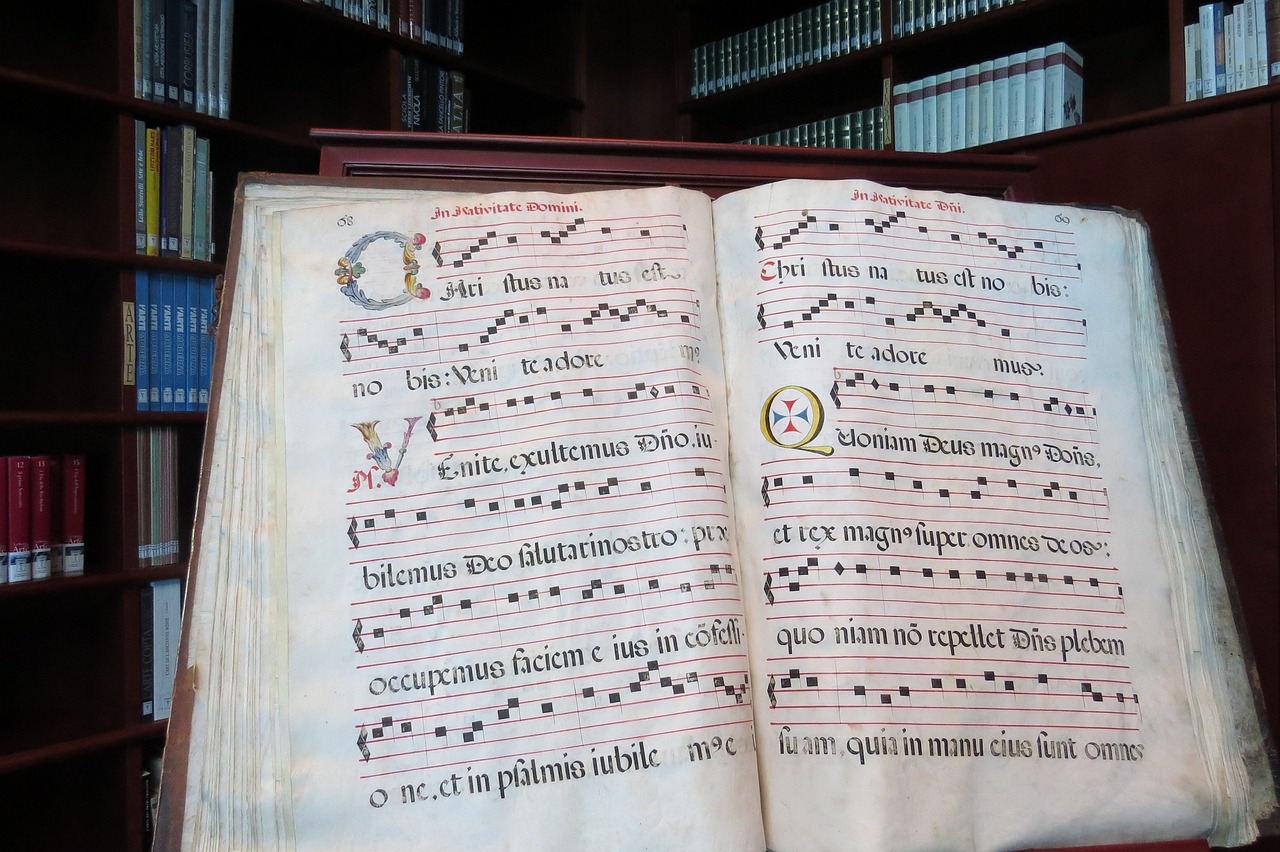 68
In Nativitate Domini.
CHri stus na tus est
no bis: Veni te adore m⁹
Ps. VEnite, exultemus Dño, iu-
bilemus Deo salutari nostro: præ
occupemus faciem e ius in cõfessi-
o ne, et in psalmis iubile m⁹ e
In Nativitate Dñi.
Chri stus na tus est no bis:
Veni te adore mus.
QUoniam Deus magn⁹ Doñs,
et rex magn⁹ super omnes deos:
quo niam nõ repellet Dñs plebem
su am, quia in manu eius sunt omnes
ARTE
L'ARTE
L'ARTE
L'ARTE
L'ARTE
L'ARTE